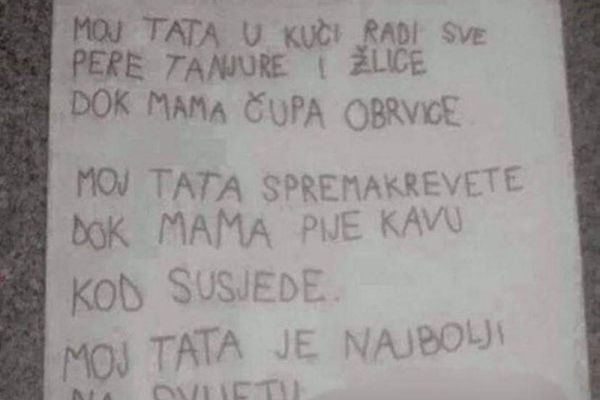 MOJ TATA U KUČI RADI SVE
PERE TANJURE I ŽLICE
DOK MAMA ČUPA OBRVICE
MOJ TATA SPREMAKREVETE
DOK MAMA PIJE KAVU
KOD SUSJEDE.
MOJ TATA JE NAJBOLJI
NA SVIJETU